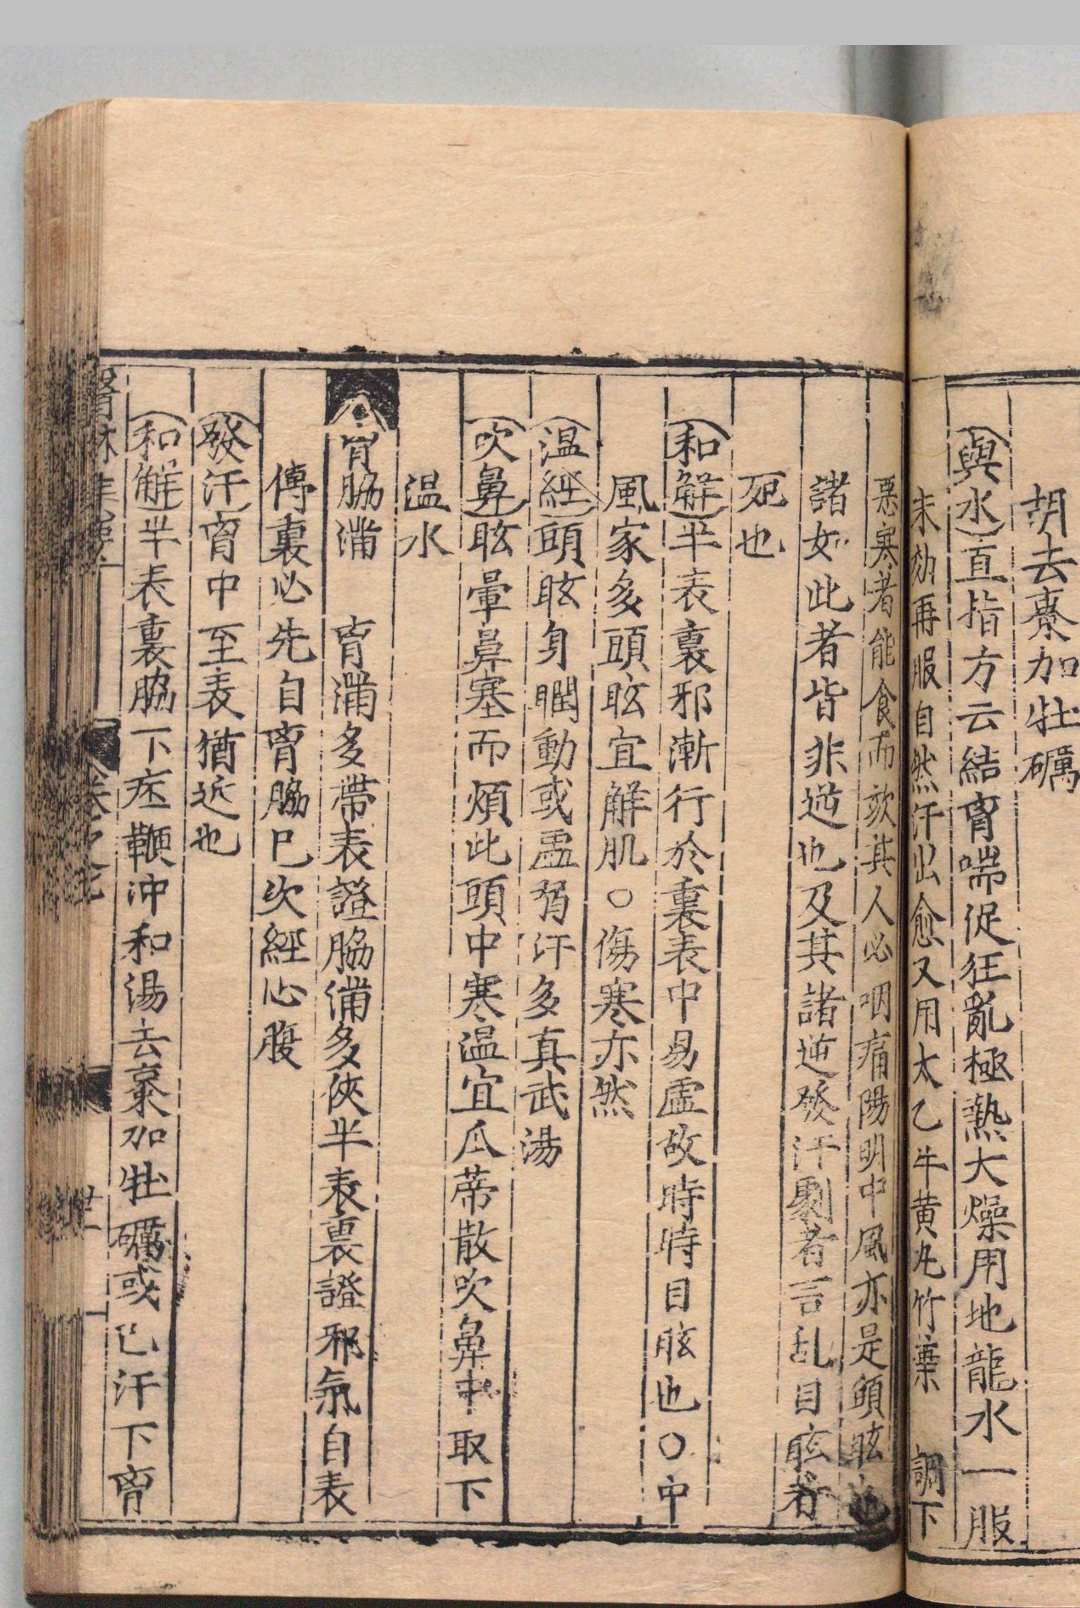 胡去棗加牡礪
與水直指方云結胷喘促狂亂極熱大燥用地龍水一服
未効再服自然汗出愈又用太乙牛黃丸竹葉 調下
惡寒者能食而欬其人必咽痛陽明中風亦是頭眩也
諸如此者皆非逆也及其諸逆發汗劇者言乱目眩者
死也
和解半表裏邪漸行於裏表中易虛故時時目眩也〇中
風家多頭眩宜解肌〇傷寒亦然
温經頭眩身瞤動或虛胷汗多真武湯
吹鼻眩暈鼻塞而煩此頭中寒温宜瓜蒂散吹鼻中取下
温水
胷脇滿 胷滿多帶表證脇滿多俠半表裏證邪氣自表
傳裏必先自胷脇已次經心腹
發汗胷中至表猶近也
和解半表裏脇下痞鞕沖和湯去棗加牡礪或已汗下胷
醫林集要 卷之七